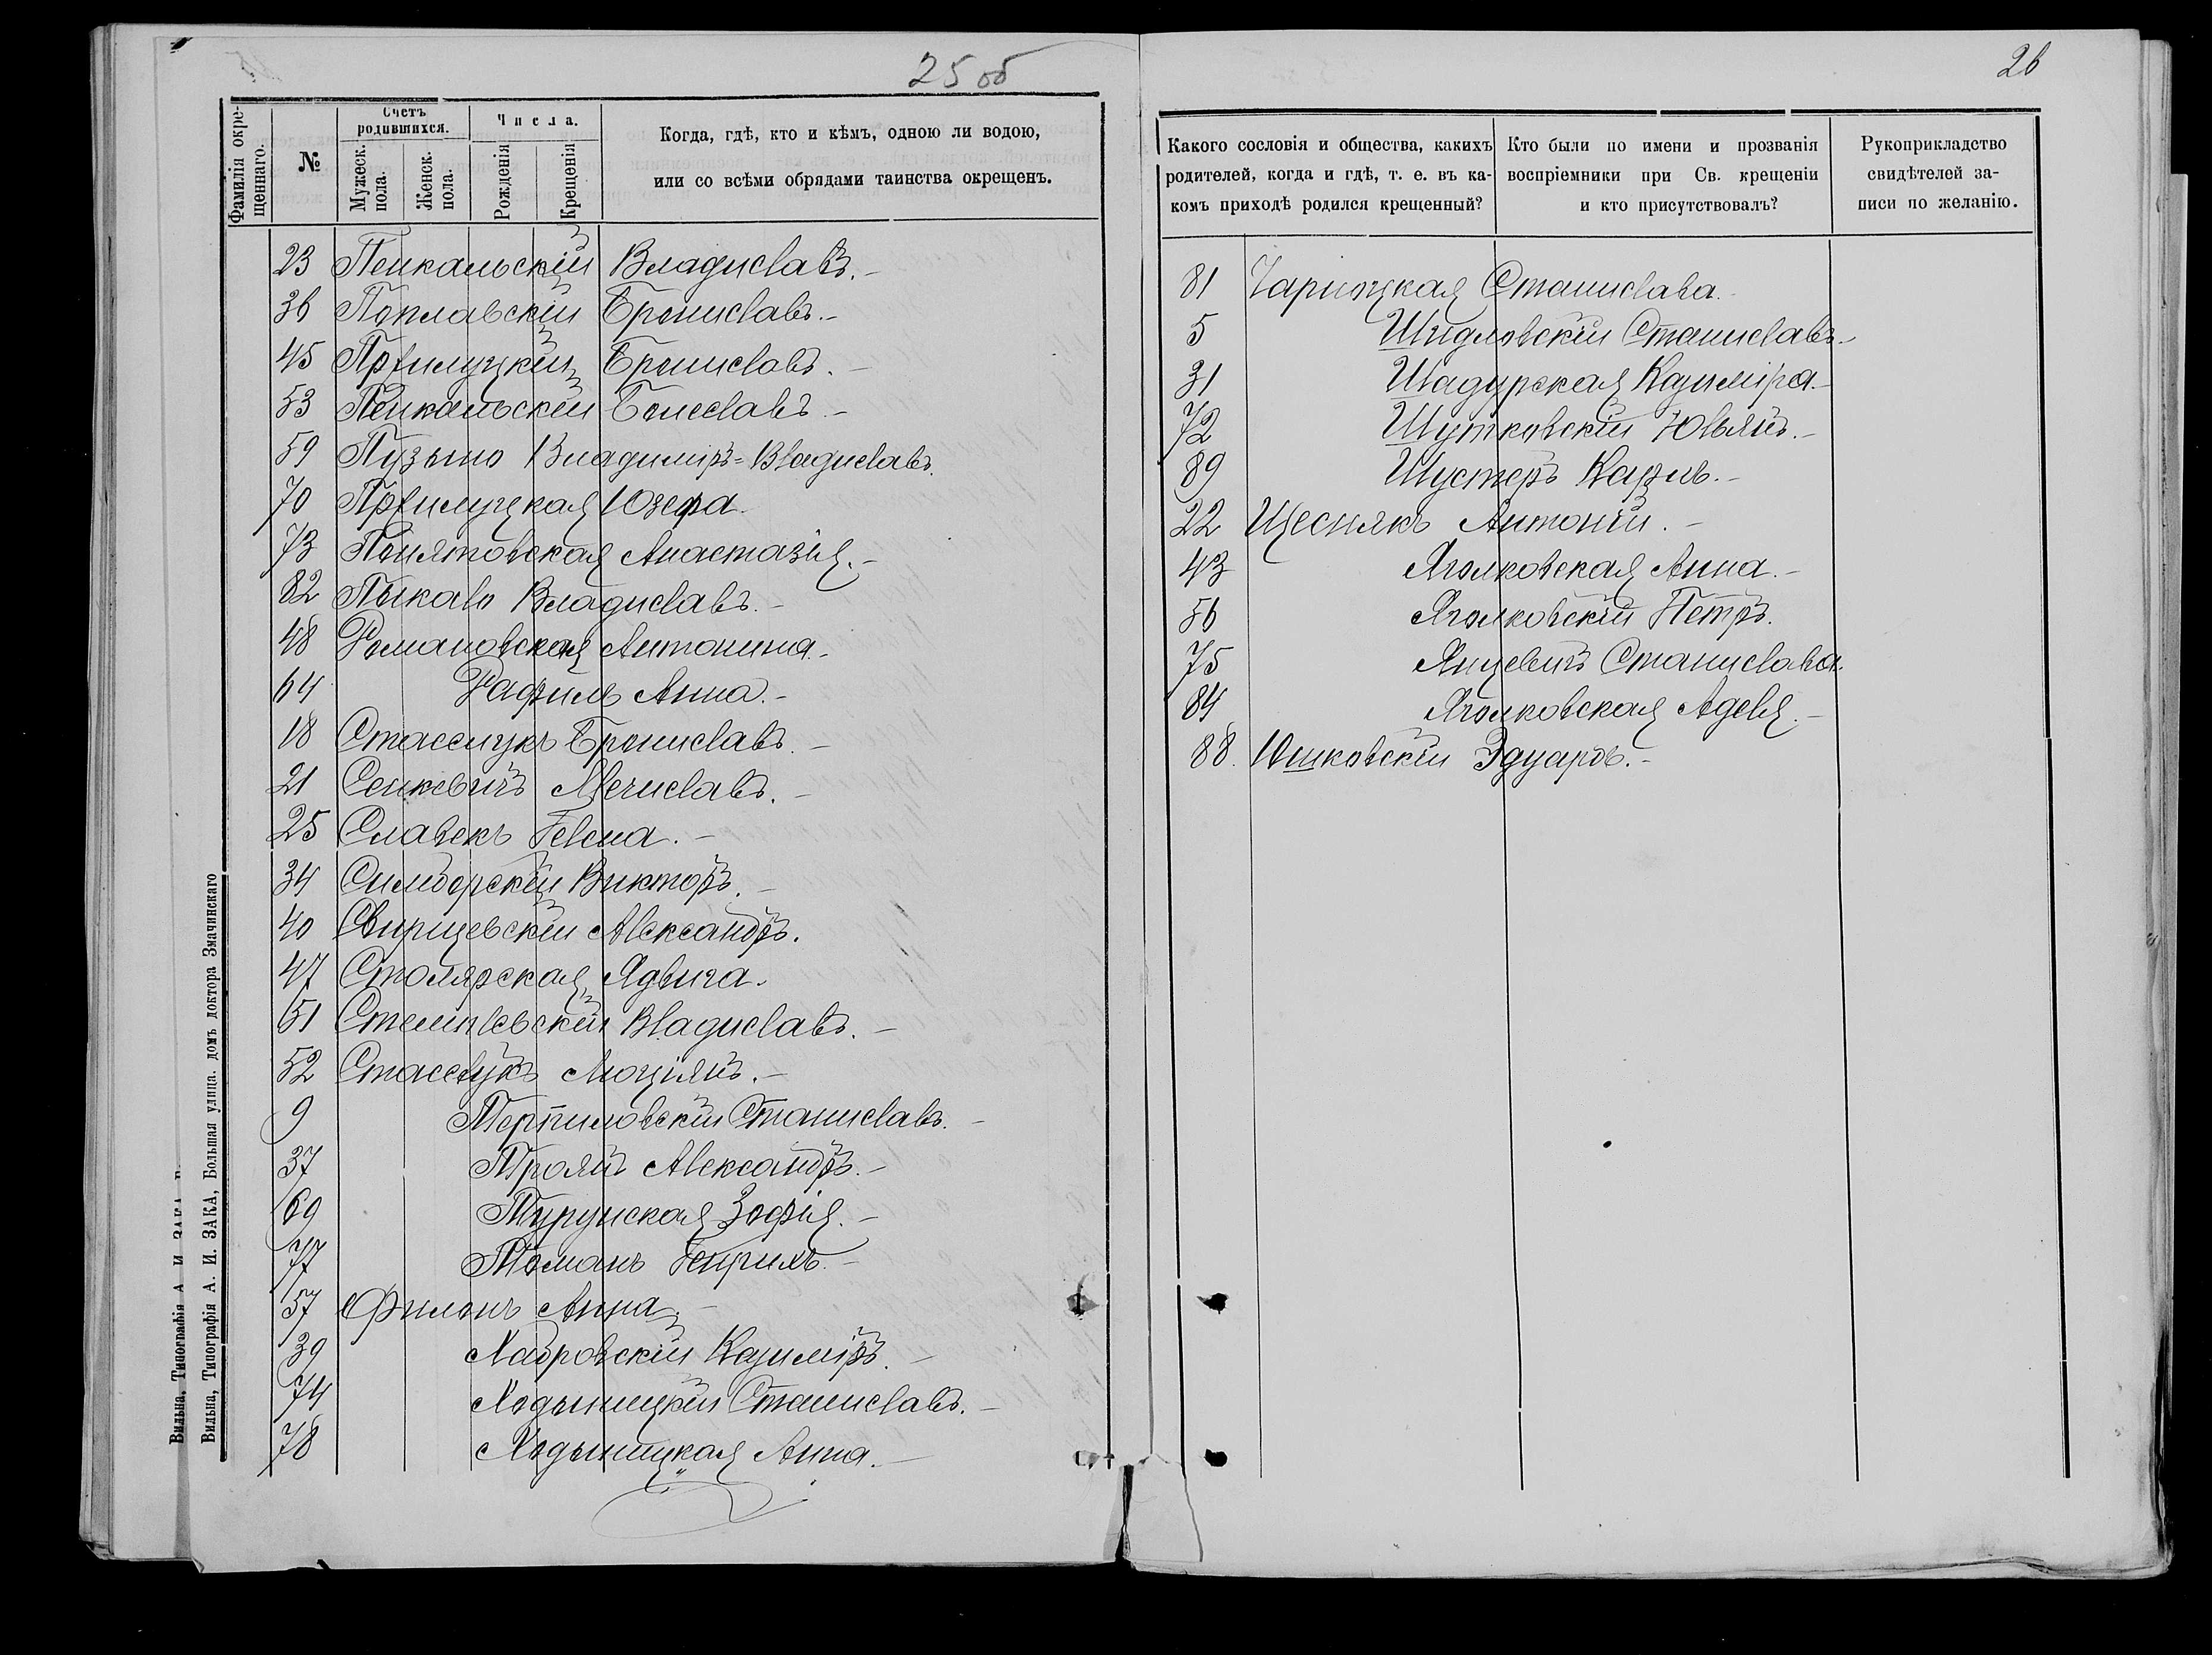 25 об
Фамилія окрещеннаго.
№
Счетъ родившихся.
Мужеск. пола.
Женск. пола.
Числа.
Рожденія
Крещенія
Когда, гдѣ, кто и кѣмъ, одною ли водою,
или со всѣми обрядами таинства окрещенъ.
23 Пенкальскій Владиславъ.-
36 Поплавскій Брониславъ.-
45 Пржилуцкій Брониславъ.-
53 Пенкальскій Болеславъ.-
59 Пузыно Владиміръ=Владиславъ.
70 Пржилуцкая Юзефа.
73 Понятовская Анастазія.-
82 Пыкало Владиславъ.-
48 Романовская Антонина.-
64 Рафиль Анна.-
18 Стасслукъ Брониславъ.-
21 Сенкевичъ Мечиславъ.-
25 Славекъ Гелена.-
34 Симборскій Викторъ.-
40 Свирщевскій Александръ.
47 Столярская Ядвига.
51 Владиславъ.-
52 Люціянъ.-
9 Терпиловскій Станиславъ.-
37 Троянъ Александръ.-
69 Турунская Зофія.-
77 Томанъ Генрихъ.-
57 Филонъ Анна.-
39 Хабровскій Казиміръ.-
74 Ходыницкій Станиславъ.-
78 Ходыницкая Анна.-
Вильна, Типографія А. И. ЗАКА, Большая улица. домъ доктора Змачинскаго
Вильна, Типографія А И ЗАКА
26
Какого сословія и общества, какихъ
родителей, когда и гдѣ, т. е. въ ка-
комъ приходѣ родился крещенный?
Кто были по имени и прозванія
воспріемники при Св. крещеніи
и кто присутствовалъ?
Рукоприкладство
свидѣтелей за-
писи по желанію.
81 Станислава.-
5 Шидловскій Станиславъ.-
31 Шадурская Казиміра.-
72 Шутковскій Юльянъ.-
89 Шустеръ Карль.-
22 Щеснякъ Антоній.-
43 Яголковская Анна.-
56 Яголковскій Петръ.
75 Янцевичъ Станислава.
84 Яголковская Аделя.-
88. Юшковскій Эдуардъ.-